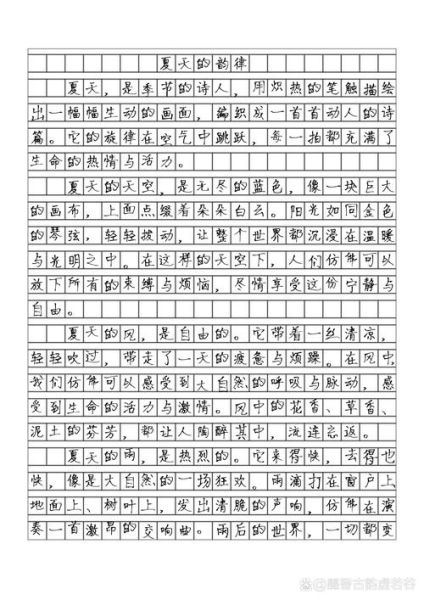 夏天的韵律
夏天，是季节的诗人，用炽热的笔触描绘
出一幅幅生动的画面，编织成一首首动人的诗
篇。它的旋律在空气中跳跃，每一拍都充满了
生命的热情与活力。
夏天的天空，是无尽的蓝色，像一块巨大
的画布，上面点缀着朵朵白云。阳光如同金色
的琴弦，轻轻拨动，让整个世界都沉浸在温暖
与光明之中。在这样的天空下，人们仿佛可以
放下所有的束缚与烦恼，尽情享受这份宁静与
自由。
夏天的风，是自由的。它带着一丝清凉，
轻轻吹过，带走了一天的疲惫与烦躁。在风中，
我们仿佛可以感受到大自然的呼吸与脉动，感
受到生命的活力与激情。风中的花香、草香、
泥土的芬芳，都让人陶醉其中，流连忘返。
夏天的雨，是热烈的。它来得快，去得也
快，像是大自然的一场狂欢。雨滴打在窗户上、
地面上、树叶上，发出清脆的声响，仿佛在演
奏一首激昂的交响曲。雨后的世界，一切都变